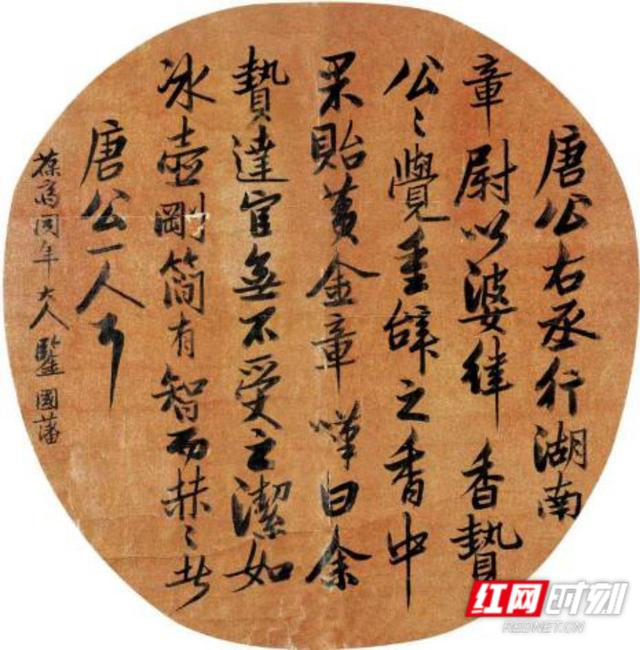 唐公右丞行湖南
章尉以婆律香贄
公公覺重辞之香中
果貽黄金章嘆曰余
贄達官無不受之潔如
冰壺剛簡有智而赫赫者
唐公一人
葆居同年大人鑒國藩
红网时刻
REDNET.CN